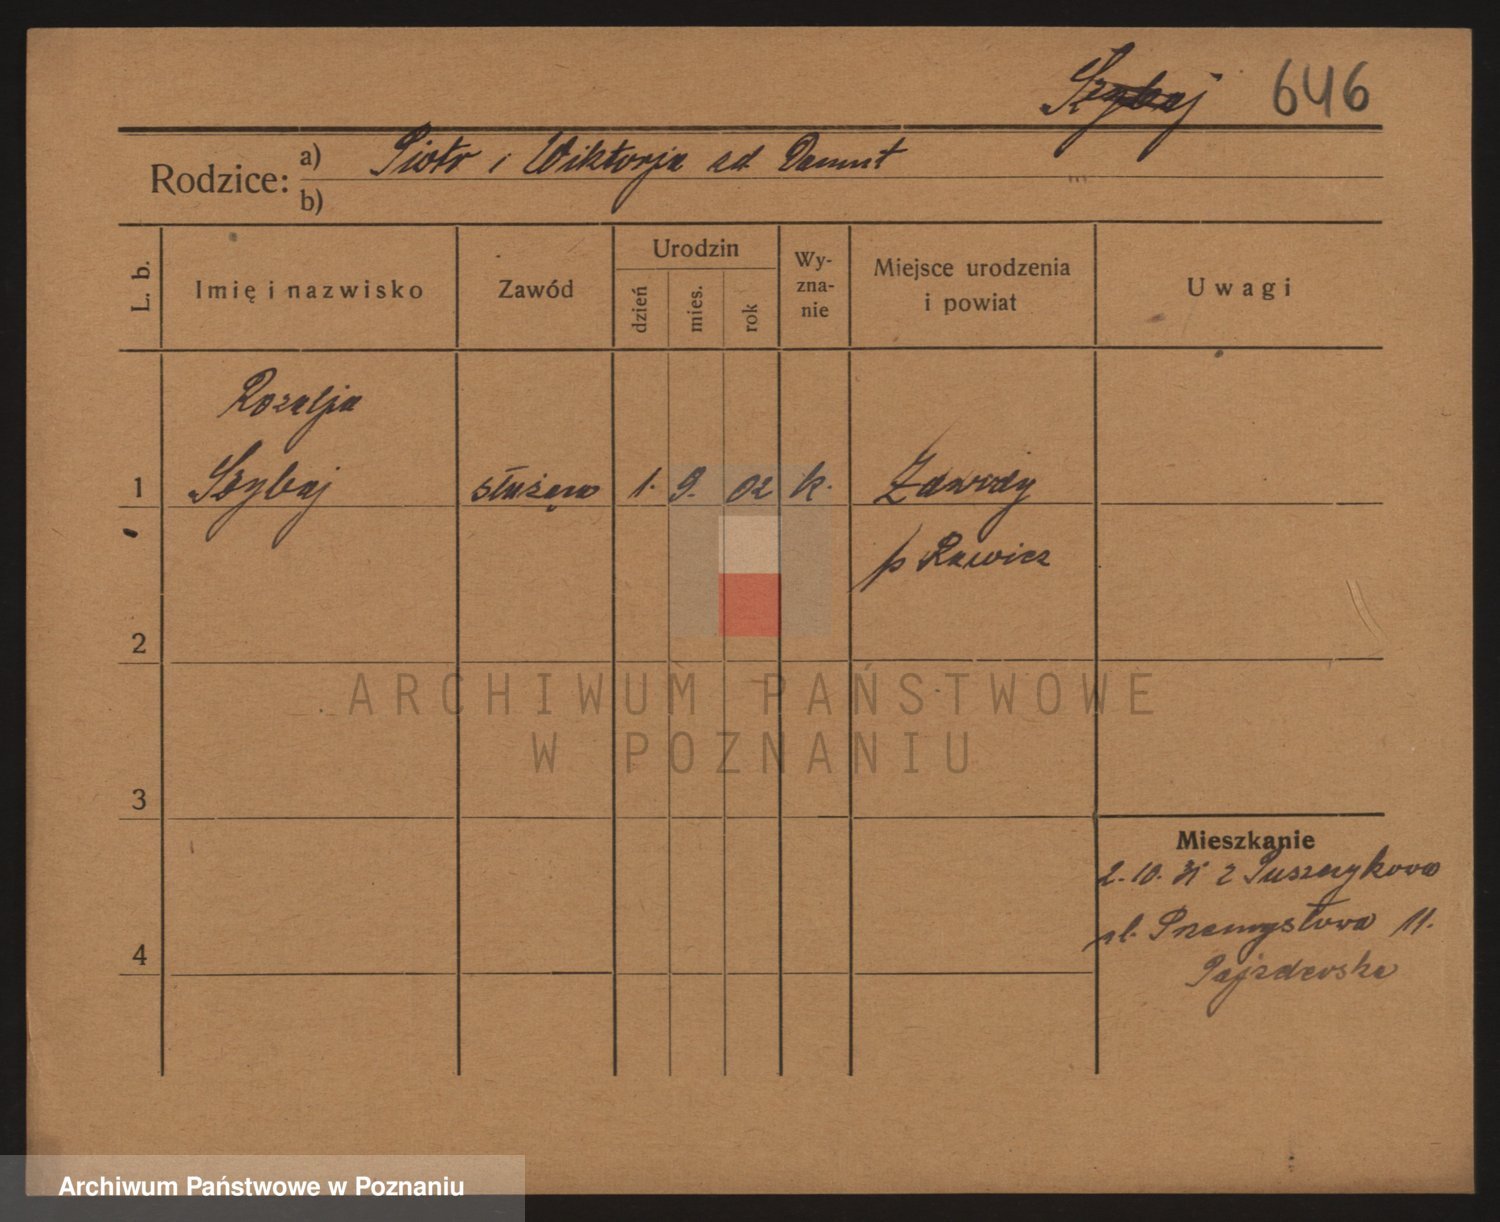 Szybaj 646
Rodzice: a) Piotr i Wiktorja zd
b)
L. b. Imię i nazwisko Zawód Urodzin dzień mies. rok Wyznanie Miejsce urodzenia i powiat Uwagi
Rozalja
1 Szybaj służąca 1. 9. 02 k. Zawady
p Rawicz
2
ARCHIWUM PAŃSTWOWE
W POZNANIU
3
Mieszkanie
2. 10. 31 z Puszczykowa
ul. Przemysłowa 11.
4
Archiwum Państwowe w Poznaniu